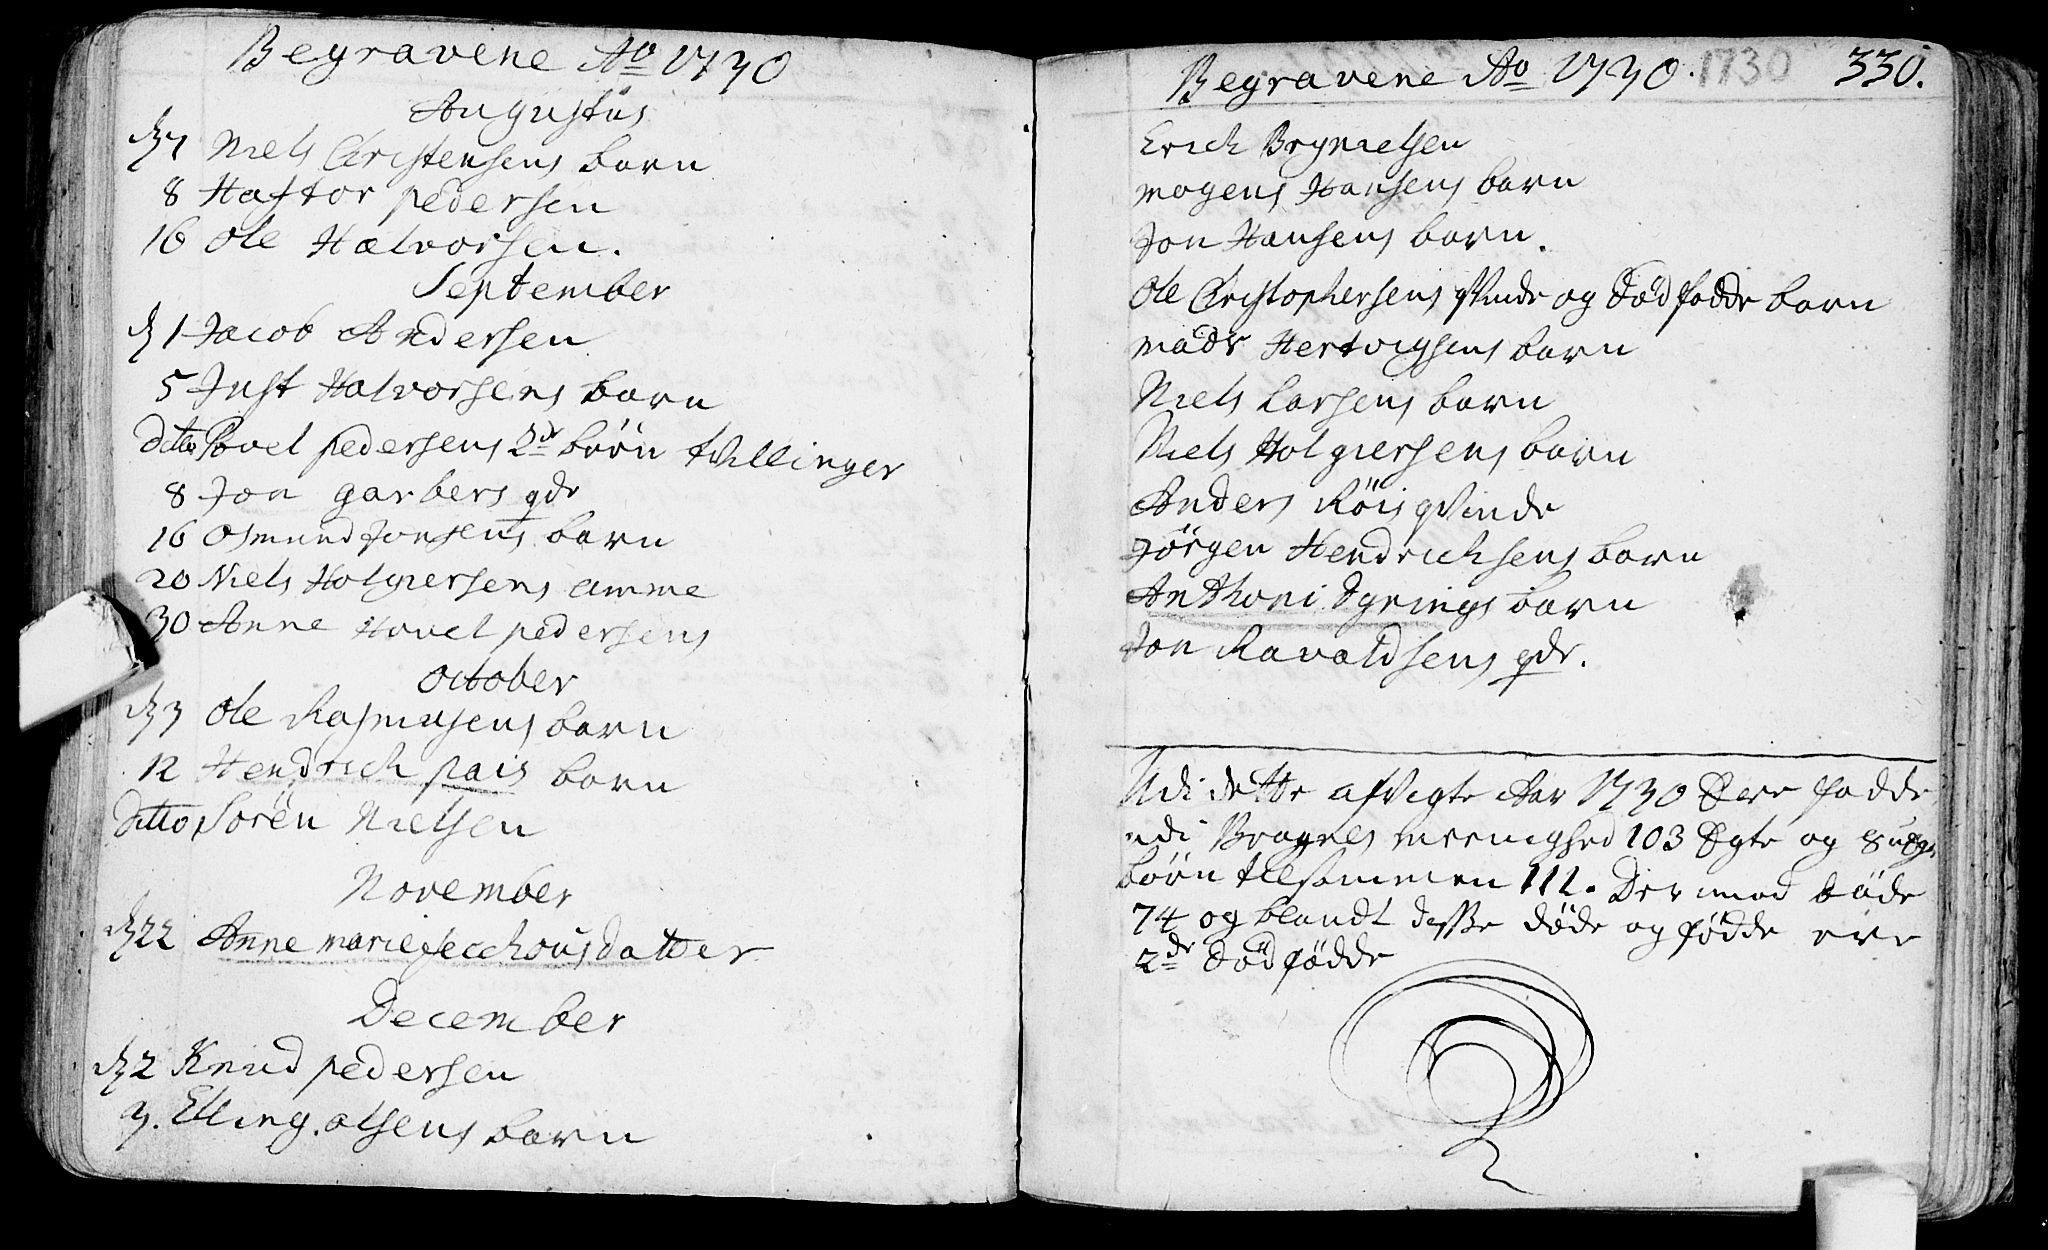 Begravene Ao 1730
Augustus
d 7 Niels Christensens barn
8 Haftor pedersen
16 Ole Halvorsen.
September
d 1 Jacob Andersen
5 Just Halvorsens barn
ditto Povel pedersens 2de börn tvillinger
8 Jon garbers qde
16 Osmund Jonsens barn
20 Niels Holgiersens amme
30 Anne Hovel pedersens
October
d 3 Ole Rasmusens barn
12 Hendrich pais barn
ditto Sören Nielsen
November
d 22 Anne marie datter
December
d 2 Knud pedersen
3. Elling olsens barn
Begravene Ao 1730. 1730 330.
Erich Brynielsen
mogens Hansens barn
Jon Hansens barn.
Ole Christophersens qvinde og dödfödde barn
mads Hertvigsens barn
Niels Larsens barn
Niels Holgiersens barn
Anders Röis qvinde
Jörgen Hendrichsens barn
Anthoni Dyrings barn
Jon Ravaldsens qde.
Udi dette afvigte Aar 1730 ere födde
udi Bragnes meenighed 103 Egte og 8 uEgte
börn tilsammen 111. Der imod döde
74 og blandt disse döde og födde ere
2de dödfödde